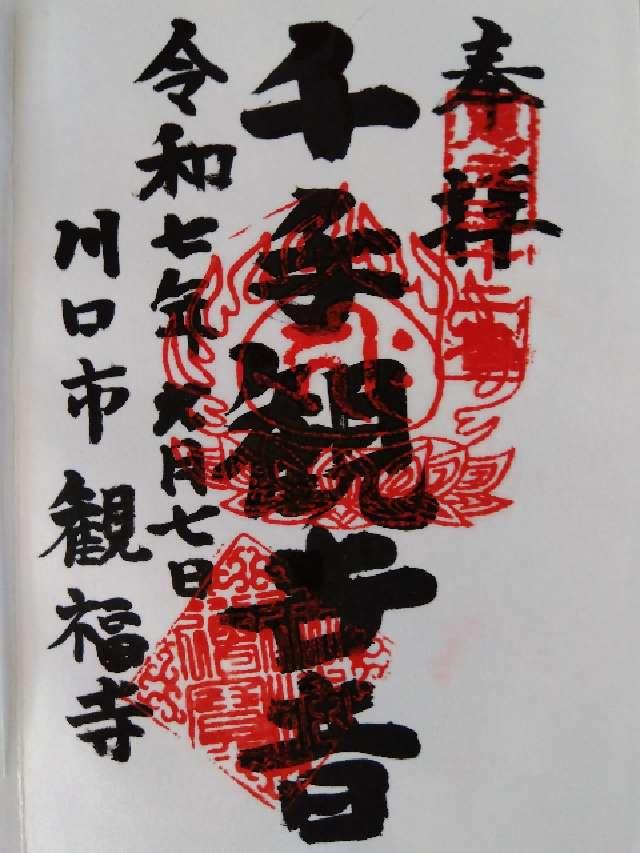 奉拝
千手観世音
令和七年六月七日
川口市 観福寺